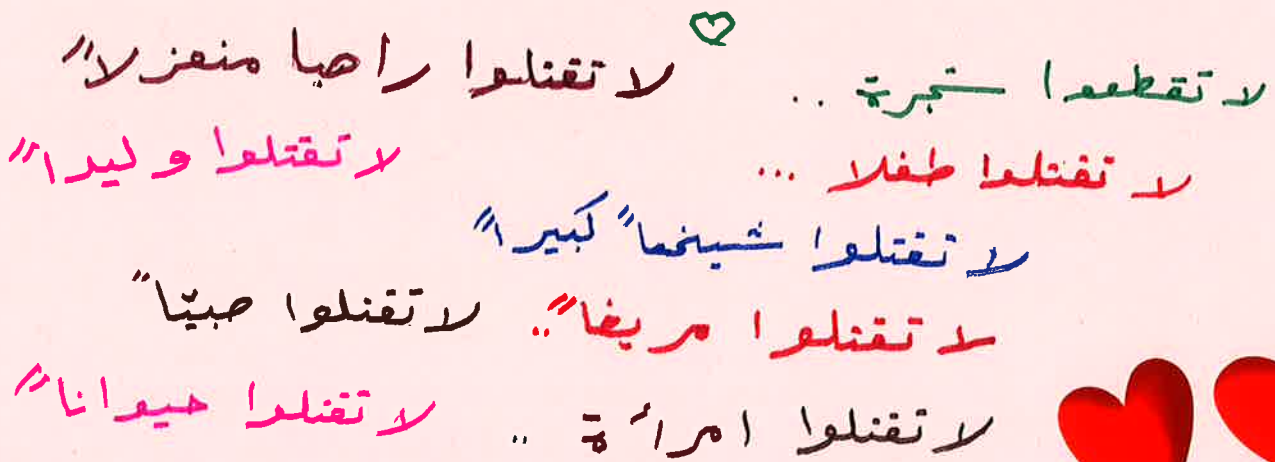 لا تقطعوا شجرة .. لا تقتلوا راهبا منعزلاً
لا تقتلوا طفلا ... لا تقتلوا وليداً
لا تقتلوا شيخاً كبيراً
لا تقتلوا مريضاً .. لا تقتلوا صبيّاً
لا تقتلوا امرأة .. لا تقتلوا حيواناً